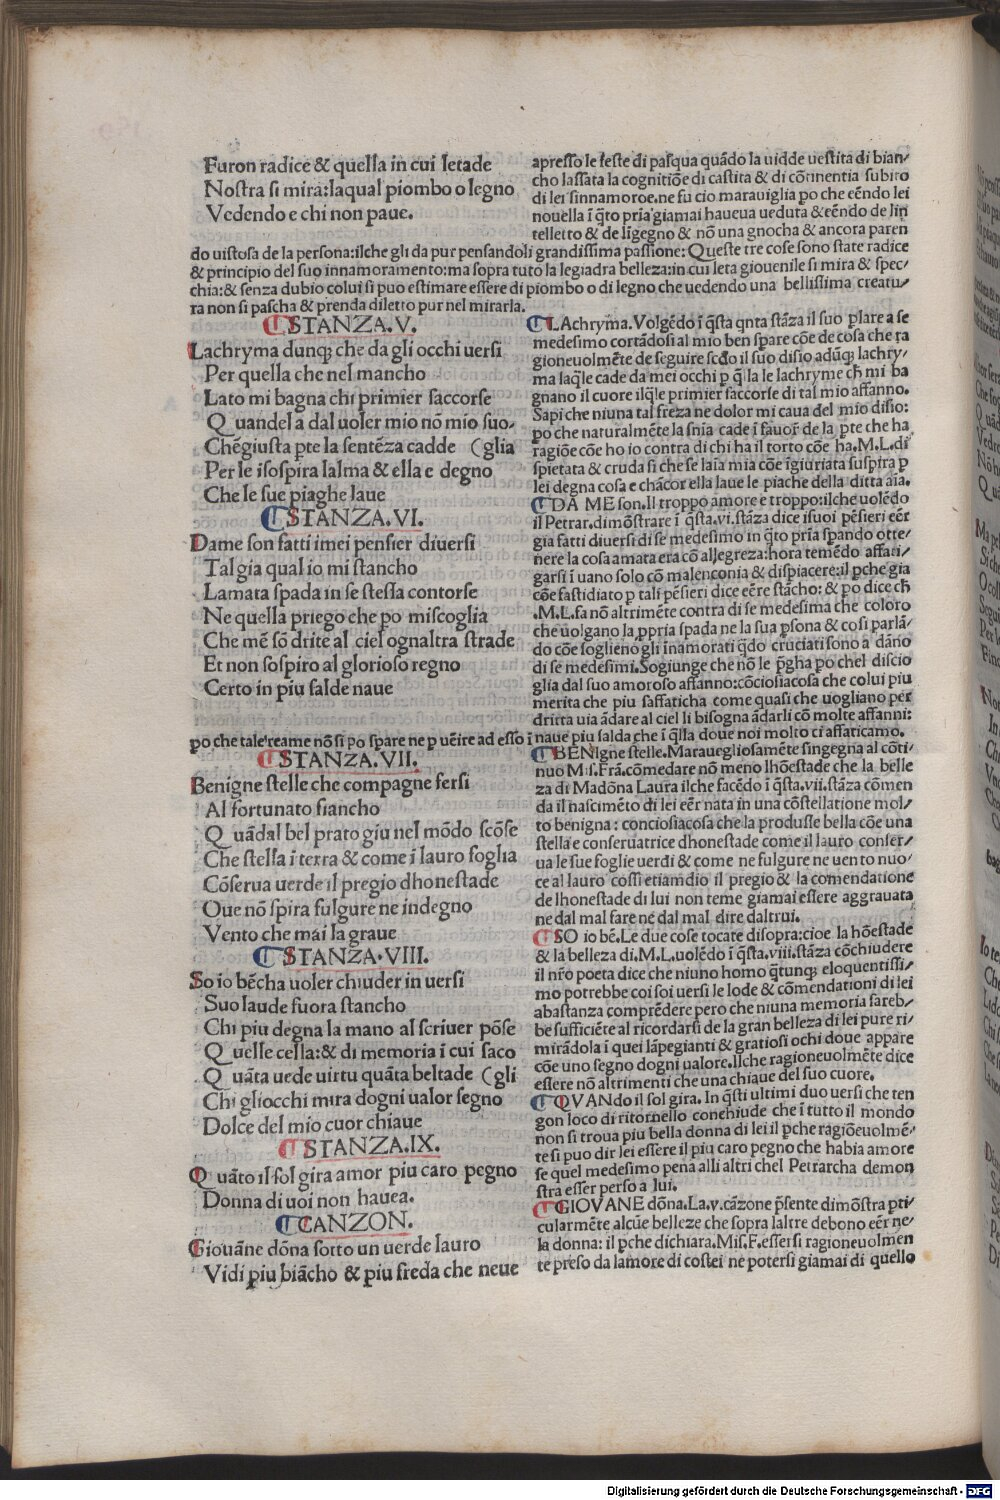 Furon radice & quella in cui letade
Nostra si mira:laqual piombo o legno
Vedendo e chi non paue.
apresso le feste di pasqua quādo la uidde uestita di bian/
cho lassata la cognitiōe di castita & di cōtinentia subito
di lei sinnamoroe.ne fu cio marauiglia po che eēndo lei
nouella ī q̄to pria giamai haueua ueduta & tēndo de lin
telletto & de ligegno & nō una gnocha & ancora paren
do uistosa de la persona:ilche gli da pur pensandoli grandissima passione: Queste tre cose sono state radice
& principio del suo innamoramento:ma sopra tuto la legiadra belleza:in cui leta giouenile si mira & spec/
chia:& senza dubio colui si puo estimare essere di piombo o di legno che uedendo una bellissima creatu/
ra non si pascha & prenda diletto pur nel mirarla.
STANZA.V.
Lachryma dunq; che da gli occhi uersi
Per quella che nel mancho
Lato mi bagna chi primier saccorse
Quandel a dal uoler mio nō mio suo.
Chēgiusta pte la sentēza cadde (glia
Per le isospira lalma & ella e degno
Che le sue piaghe laue
STANZA.VI.
Dame son fatti imei pensier diuersi
Tal gia qual io mi stancho
Lamata spada in se stessa contorse
Ne quella priego che po miscoglia
Che mē sō drite al ciel ognaltra strade
Et non sospiro al glorioso regno
Certo in piu salde naue
LAchryma.Volgēdo ī q̄sta qnta stāza il suo plare a se
medesimo cortādosi al mio ben spare cōe de cosa che ra
gioneuolmēte de seguire scdo il suo disio adūq; lachry/
ma laq̄le cade da mei occhi p q̄lla le lachryme ch̄ mi ba
gnano il cuore ilq̄le primier saccorse di tal mio affanno.
Sapi che niuna tal freza ne dolor mi caua del mio disio:
po che naturalmēte la snīa cade ī fauor̄ de la pte che ha
ragiōe cōe ho io contra di chi ha il torto cōe ha.M.L.di
spietata & cruda si che se laia mia cōe īgiuriata suspira p
lei degna cosa e chācor ella laue le piache della ditta aia.
DA ME son.Il troppo amore e troppo:ilche uolēdo
il Petrar.dimōstrare ī q̄sta.vi.stāza dice isuoi pēsieri eēr
gia fatti diuersi di se medesimo in q̄to pria spando otte/
nere la cosa amata era cō allegreza:hora temēdo affati/
garsi ī uano solo cō malenconia & dispiacere:il pche gia
cōe fastidiato p tali pēsieri dice eēre stācho: & po dice ch̄
.M.L.fa nō altrimēte contra di se medesima che coloro
che uolgano la ppria spada ne la sua psona & cosi parlā/
do cōe soglieno gli īnamorati q̄do cruciati sono a dāno
di se medesimi.Sogiunge che nō le p̄gha po chel discio
glia dal suo amoroso affanno:cōciosiacosa che colui piu
merita che piu saffaticha come quasi che uogliano per
dritta uia ādare al ciel li bisogna ādarli cō molte affanni:
po che tale reame nō si po spare ne p uēire ad esso ī naue piu salda che ī q̄lla doue noi molto ci affaticamo.
STANZA.VII.
Benigne stelle che compagne fersi
Al fortunato fiancho
Quādal bel prato giu nel mōdo scōse
Che stella ī terra & come ī lauro foglia
Cōserua uerde il pregio dhonestade
Oue nō spira fulgure ne indegno
Vento che mai la graue
STANZA.VIII.
So io bēcha uoler chiuder in uersi
Suo laude fuora stancho
Chi piu degna la mano al scriuer pōse
Quelle cella:& di memoria ī cui saco
Quāta uede uirtu quāta beltade (gli
Chi gliocchi mira dogni ualor segno
Dolce del mio cuor chiaue
STANZA.IX.
Quāto il sol gira amor piu caro pegno
Donna di uoi non hauea.
CANZON.
Giouāne dōna sotto un uerde lauro
Vidi piu biācho & piu freda che neue
BENIgne stelle.Marauegliosamēte singegna al cōti/
nuo Mis.Frā.cōmedare nō meno lhōestade che la belle
za di Madōna Laura ilche facēdo ī q̄sta.vii.stāza cōmen
da il nascimēto di lei eēr nata in una cōstellatione mol/
to benigna : conciosiacosa che la produsse bella cōe una
stella e conseruatrice dhonestade come il lauro conser/
ua le sue foglie uerdi & come ne fulgure ne uento nuo/
ce al lauro cossi etiamdio il pregio & la comendatione
de lhonestade di lui non teme giamai essere aggrauata
ne dal mal fare ne dal mal dire daltrui.
SO io bē.Le due cose tocate disopra:cioe la hōestade
& la belleza di.M.L.uolēdo ī q̄sta.viii.stāza cōchiudere
il nr̄o poeta dice che niuno homo q̄tunq; eloquentissi/
mo potrebbe coi soi uersi le lode & cōmendationi di lei
abastanza comprēdere pero che niuna memoria sareb/
be sufficiēte al ricordarsi de la gran belleza di lei pure ri/
mirādola ī quei lāpegianti & gratiosi ochi doue appare
cōe uno segno dogni ualore.Ilche ragioneuolmēte dice
essere nō altrimenti che una chiaue del suo cuore.
QVANdo il sol gira. In q̄sti ultimi duo uersi che ten
gon loco di ritornello conchiude che ī tutto il mondo
non si troua piu bella donna di lei il pche ragiōeuolmē/
te si puo dir lei essere il piu caro pegno che habia amore
se quel medesimo pena alli altri chel Petrarcha demon
stra esser perso a lui.
GIOVANE dōna.La.v.cāzone p̄sente dimōstra pti/
cularmēte alcūe belleze che sopra laltre debono eēr ne/
la donna: il pche dichiara.Mis.F.essersi ragioneuolmen
te preso da lamore di costei ne potersi giamai di quello
Digitalisierung gefördert durch die Deutsche Forschungsgemeinschaft - DFG